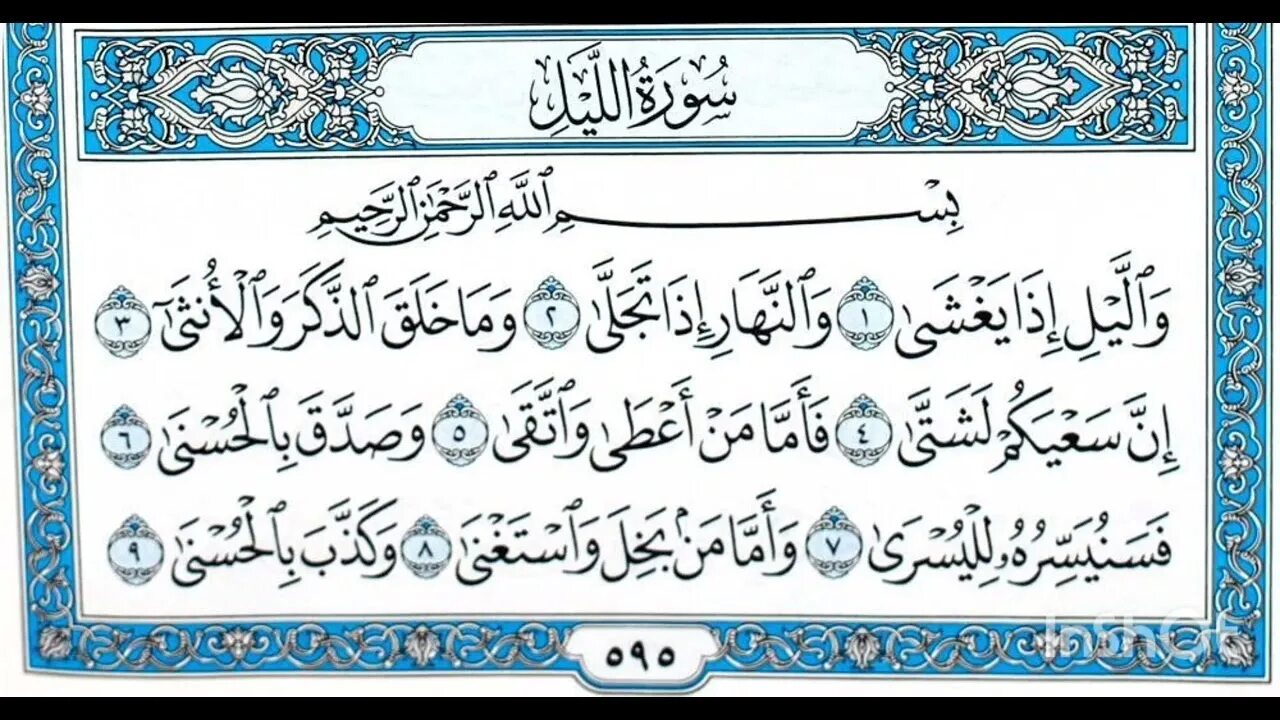 سُورَةُ اللَّيْلِ
بِسْمِ ٱللَّهِ ٱلرَّحْمَٰنِ ٱلرَّحِيمِ
وَٱلَّيْلِ إِذَا يَغْشَىٰ ١ وَٱلنَّهَارِ إِذَا تَجَلَّىٰ ٢ وَمَا خَلَقَ ٱلذَّكَرَ وَٱلْأُنثَىٰٓ ٣
إِنَّ سَعْيَكُمْ لَشَتَّىٰ ٤ فَأَمَّا مَنْ أَعْطَىٰ وَٱتَّقَىٰ ٥ وَصَدَّقَ بِٱلْحُسْنَىٰ ٦
فَسَنُيَسِّرُهُۥ لِلْيُسْرَىٰ ٧ وَأَمَّا مَنۢ بَخِلَ وَٱسْتَغْنَىٰ ٨ وَكَذَّبَ بِٱلْحُسْنَىٰ ٩
٥٩٥
InShot